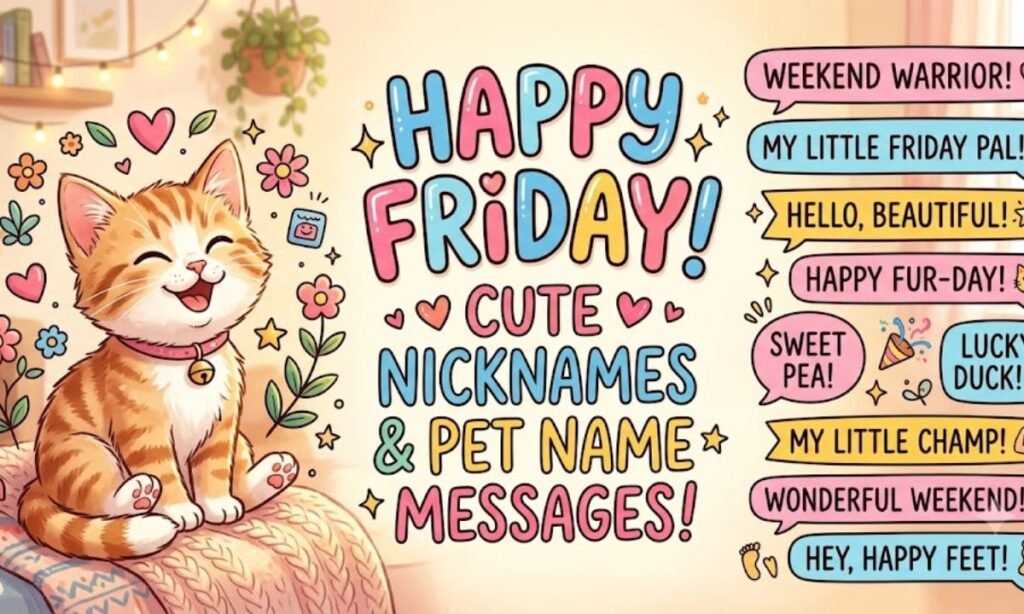 HAPPY
FRiDAY!
CUTE
NICKNAMES
& PET NAME
MESSAGES!
WEEKEND WARRIOR!
MY LITTLE FRIDAY PAL!
HELLO, BEAUTIFUL!
HAPPY FUR-DAY!
SWEET
PEA!
LUCKY
DUCK!
MY LITTLE CHAMP!
WONDERFUL WEEKEND!
HEY, HAPPY FEET!